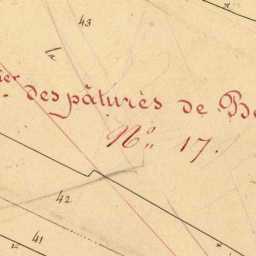 43
ier des pâturès de Be
No. 17.
42
41